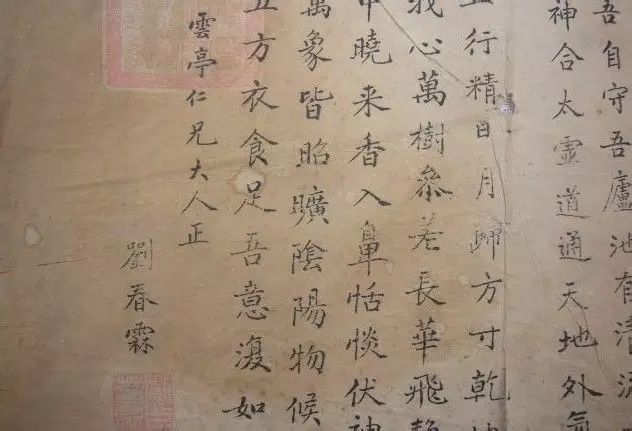 吾自守吾廬池有清流
神合太靈道通天地外氣
五行精日月歸方寸乾坤
我心萬樹叅差長華飛静
中曉来香入鼻恬惔伏神
萬象皆昭曠陰陽物候
五方衣食足吾意復如
雲亭仁兄大人正
劉春霖